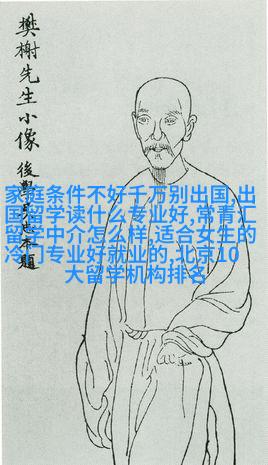 樊榭先生小像
後學本題
家庭条件不好千万别出国,出
国留学读什么专业好,常青汇
留学中介怎么样,适合女生的
冷门专业好就业的,北京10
大留学机构排名